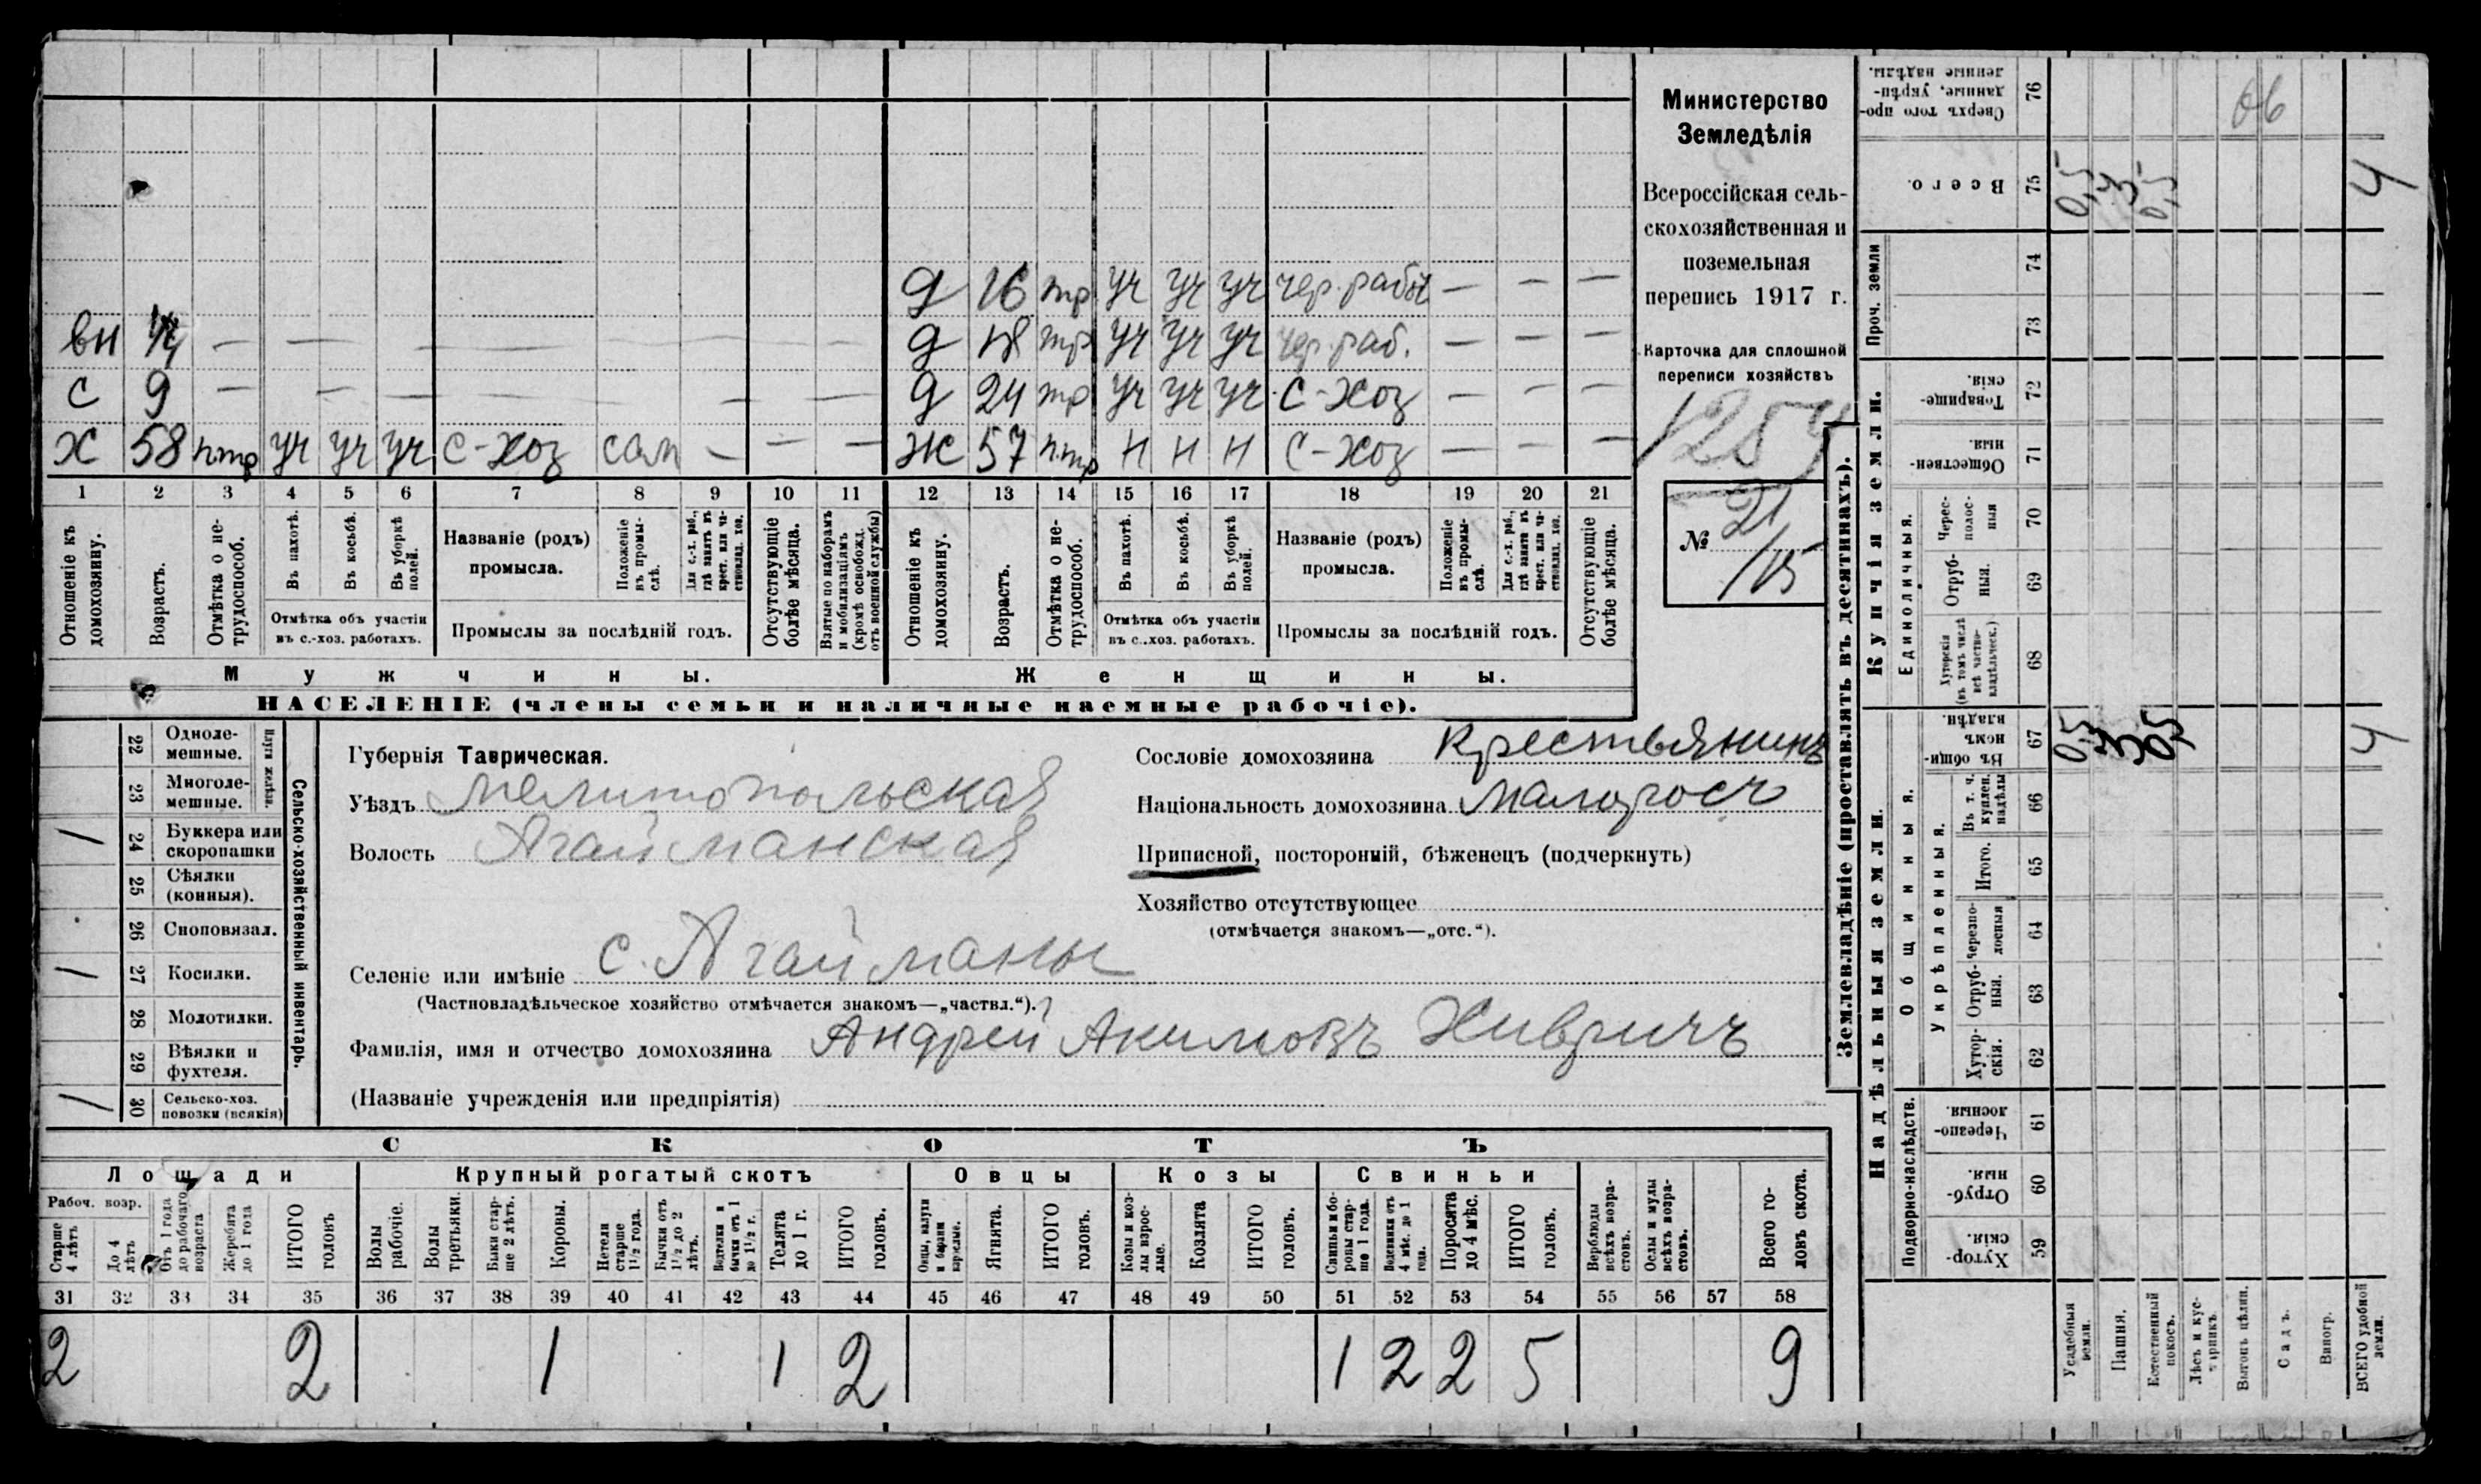 д 16 тр уч уч уч чер. рабоч — — —
вн — — — — — — — — —
д 18 тр уч уч уч чер. раб. — — —
с 9 — — — — — — —
д 24 тр уч уч уч с-хоз — — —
х 58 птр уч уч уч с-хоз сам — — —
ж 57 птр н н н с-хоз — — —
1 2 3 4 5 6 7 8 9 10 11 12 13 14 15 16 17 18 19 20 21
Отношеніе къ домохозяину.
Возрастъ.
Отмѣтка о нетрудоспособ.
Въ пахотѣ.
Въ косьбѣ.
Въ уборкѣ полей.
Отмѣтка объ участіи
въ с.-хоз. работахъ.
Названіе (родъ)
промысла.
Положеніе въ промыслѣ.
Для с.-х. раб., гдѣ занятъ въ крест. или частновлад. хоз.
Промыслы за послѣдній годъ.
Отсутствующіе болѣе мѣсяца.
Взятые по наборамъ и мобилизаціямъ (кромѣ освобожд. отъ военной службы)
Отношеніе къ домохозяину.
Возрастъ.
Отмѣтка о нетрудоспособ.
Въ пахотѣ.
Въ косьбѣ.
Въ уборкѣ полей.
Отмѣтка объ участіи
въ с..хоз. работахъ.
Названіе (родъ)
промысла.
Положеніе въ промыслѣ.
Для с.-х. раб., гдѣ занята въ крест. или частновлад. хоз.
Промыслы за послѣдній годъ.
Отсутствующіе болѣе мѣсяца.
Мужчины.
Женщины.
НАСЕЛЕНІЕ (члены семьи и наличные наемные рабочіе).
Министерство
Земледѣлія
Всероссійская сель-
скохозяйственная и
поземельная
перепись 1917 г.
Карточка для сплошной
переписи хозяйствъ
1254
№ 21
/115
22 Одноле-
мешные.
23 Многоле-
мешные.
Плуги желѣзн.
/ 24 Буккера или
скоропашки
25 Сѣялки
(конныя).
26 Сноповязал.
/ 27 Косилки.
28 Молотилки.
29 Вѣялки и
фухтеля.
/ 30 Сельско-хоз.
повозки (всякія)
Сельско-хозяйственный инвентарь.
Губернія Таврическая.
Уѣздъ мелитопольская
Волость Агайманская
Селеніе или имѣніе с. Агайманы
(Частновладѣльческое хозяйство отмѣчается знакомъ—„частвл.“).
Фамилія, имя и отчество домохозяина Андрей Акимовъ Хивричъ
(Названіе учрежденія или предпріятія)
Сословіе домохозяина Крестьянинъ
Національность домохозяина малоросъ
Приписной, посторонній, бѣженецъ (подчеркнуть)
Хозяйство отсутствующее
(отмѣчается знакомъ—„отс.“).
СКОТЪ
Лошади
Крупный рогатый скотъ
Овцы
Козы
Свиньи
Рабоч. возр.
Старше 4 лѣтъ
До 4 лѣтъ
Отъ 1 года до рабочаго возраста
Жеребята до 1 года
ИТОГО головъ
Волы рабочіе.
Волы третьяки.
Быки старше 2 лѣтъ.
Коровы.
Нетели старше 1½ года.
Бычки отъ 1½ до 2 лѣтъ.
Подтелки и бычки отъ 1 до 1½ г.
Телята до 1 г.
ИТОГО головъ.
Овцы, валухи и бараны взрослые.
Ягнята.
ИТОГО головъ.
Козы и козлы взрослые.
Козлята
ИТОГО головъ.
Свиньи и боровы старше 1 года.
Подсвинки отъ 4 мѣс. до 1 года.
Поросята до 4 мѣс.
ИТОГО головъ.
Верблюды всѣхъ возрастовъ.
Ослы и мулы всѣхъ возрастовъ.
Всего головъ скота.
31 32 33 34 35 36 37 38 39 40 41 42 43 44 45 46 47 48 49 50 51 52 53 54 55 56 57 58
2 2 1 1 2 1 2 2 5 9
Землевладѣніе (проставлять въ десятинахъ).
Купчія земли.
Надѣльныя земли.
Сверхъ того проданные, укрѣпленные надѣлы. 76 об
Всего. 75 0,5 3 0,5 4
Проч. земли 74
73
Товарищескія. 72
Общественныя. 71
Единоличныя.
Чересполосныя 70
Отрубныя. 69
Хуторскія (въ томъ числѣ всѣ частновладѣльческ.) 68
Общинныя.
Въ общинномъ владѣн. 67 0,5 3 0,5 4
Укрѣпленныя.
Въ т. ч. куплен. надѣлы 66
Итого. 65
Черезполосныя 64
Отрубныя. 63
Хуторскія. 62
Подворно-наслѣдств.
Черезполосныя. 61
Отрубныя. 60
Хуторскія. 59
Усадебныя земли.
Пашня.
Естественный покосъ.
Лѣсъ и кустарникъ.
Выгонъ цѣлин.
Садъ.
Виногр.
ВСЕГО удобной земли.